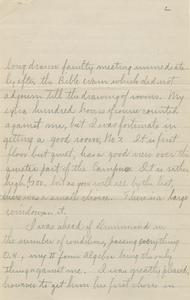 2
long drawn faculty meeting immediate-
ly after the Bible exam which did not
adjourn till the drawing of rooms. My
extra hundred hours of course counted
against me, but I was fortunate in
getting a good room, No 2. It is first
floor but quiet, has a good view over the
quieter part of the Campus. It is rather
high, but as you will see by the list,
there was a small choice. There is a large
window in it.
I was ahead of Drummond in
the number of conditions, passing everything
O.K., my II from Algebra being the only
thing against me. I was greatly pleased,
however to get him his first show in